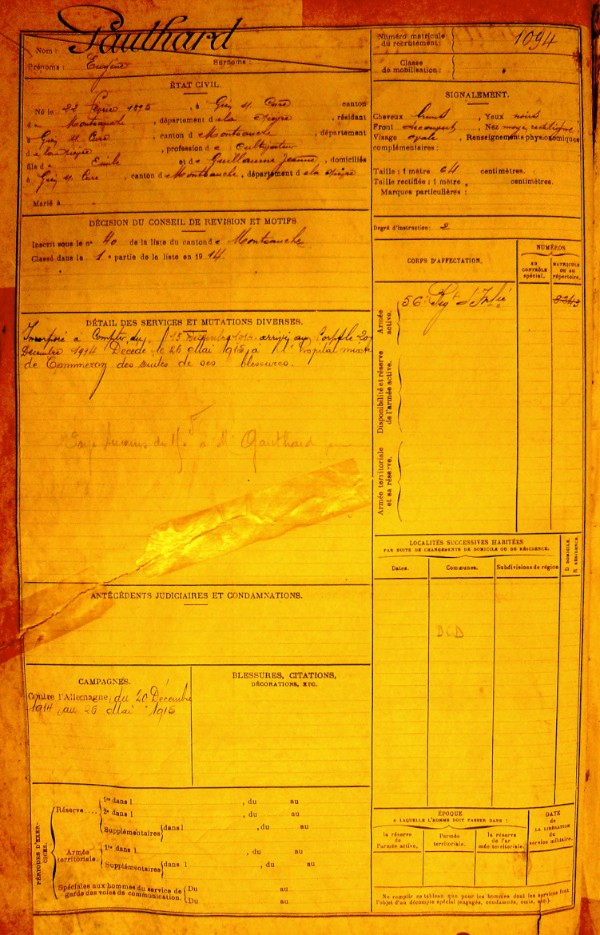 Nom : Pauthard
Prénoms : Eugène Surnoms :
Numéro matricule du recrutement : 1094
Classe de mobilisation :
ÉTAT CIVIL.
Né le 22 1895, à Gien s/ Cure canton
de Montsauche, département de la Nièvre, résidant
à Gien s/ Cure, canton de Montsauche, département
de la Nièvre, profession de Cultivateur
fils de Emile et de Guillaume Jeanne, domiciliés
à Gien s/ Cure, canton de Montsauche, département de la Nièvre
Marié à
SIGNALEMENT.
Cheveux bruns, Yeux noirs
Front découvert, Nez moyen, rectiligne
Visage ovale, Renseignements physionomiques
complémentaires :
Taille : 1 mètre 64 centimètres.
Taille rectifiée : 1 mètre, centimètres.
Marques particulières :
Degré d'instruction : 2
DÉCISION DU CONSEIL DE REVISION ET MOTIFS.
Inscrit sous le n° 40 de la liste du canton de Montsauche
Classé dans la 1e partie de la liste en 1914
CORPS D'AFFECTATION.
NUMÉROS
AU CONTRÔLE spécial.
MATRICULE OU AU répertoire.
Armée active.
56e Regt d'Infie
Disponibilité et réserve de l'armée active.
Armée territoriale et sa réserve.
DÉTAIL DES SERVICES ET MUTATIONS DIVERSES.
Incorporé à compter du décembre 1914 arrivé au Corps le 20
Décembre 1914 Décédé le 26 Mai 1915 à l'hopital mixte
de Commercy des suites de ses blessures.
à Mr Gauthard
LOCALITÉS SUCCESSIVES HABITÉES
PAR SUITE DE CHANGEMENTS DE DOMICILE OU DE RÉSIDENCE.
Dates. Communes. Subdivisions de région D. DOMICILE. R. RÉSIDENCE.
DCD
ANTÉCÉDENTS JUDICIAIRES ET CONDAMNATIONS.
CAMPAGNES.
Contre l'Allemagne, du 20 Décembre
1914 au 26 Mai 1915
BLESSURES, CITATIONS,
DÉCORATIONS, ETC.
PÉRIODES D'EXERCICES.
Réserve....
1re dans l , du au
2e dans l , du au
Supplémentaires dans l , du au
Armée territoriale.
1re dans l , du au
Supplémentaires dans l , du au
Spéciales aux hommes du service de
garde des voies de communication.
Du au
Du au
ÉPOQUE
A LAQUELLE L'HOMME DOIT PASSER DANS :
la réserve de l'armée active, l'armée territoriale. la réserve de l'armée territoriale.
DATE de LA LIBÉRATION du service militaire.
Ne remplir ce tableau que pour les hommes dont les services font
l'objet d'un décompte spécial (engagés, condamnés, omis, etc.).